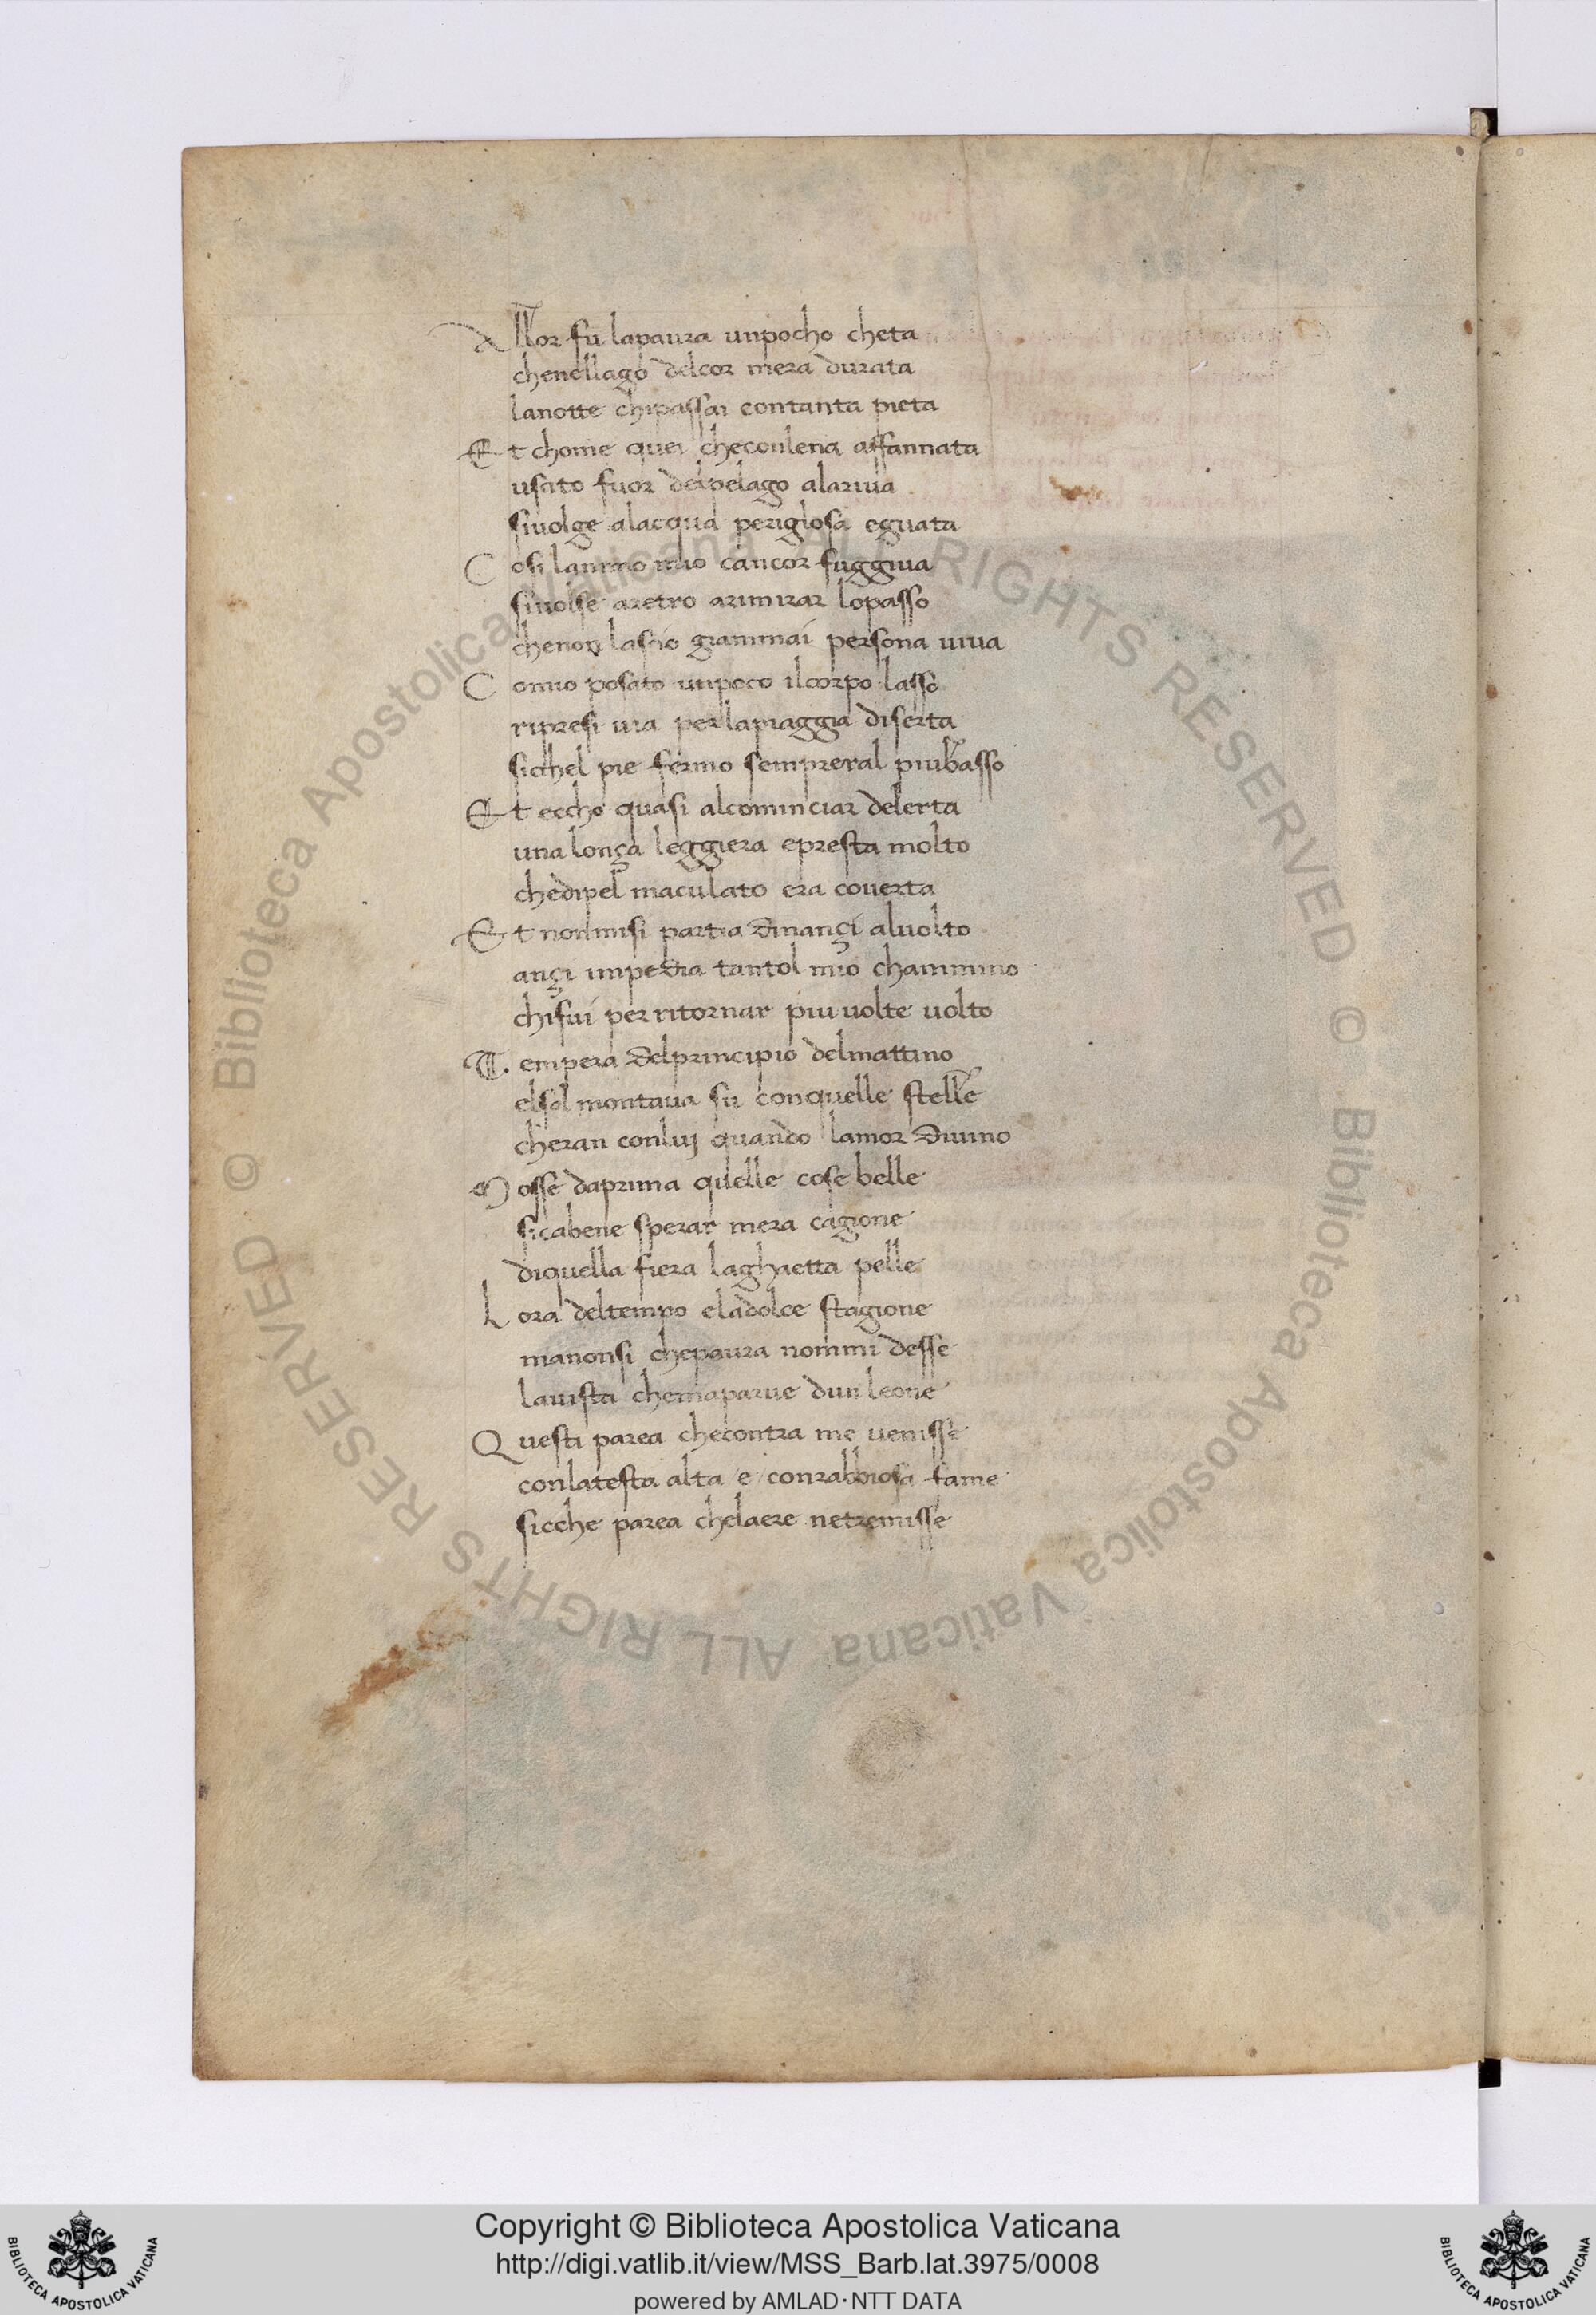 Allor fu lapaura unpocho cheta
chenellago delcor mera durata
lanotte chipassai contanta pieta
Et chome quei checonlena affannata
uscito fuor delpelago alariua
siuolge alacqua periglosa eguata
Cosi lanimo mio cancor fuggiua
siuolse aretro arimirar lopasso
chenon lascio giammai persona uiua
Comio posato unpoco ilcorpo lasso
ripresi uia perlapiaggia diserta
sicchel pie fermo sempreral piubasso
Et eccho quasi alcominciar delerta
una lonça leggiera epresta molto
chedipel maculato era couerta
Et nonmisi partia dinançi aluolto
ançi impedia tantol mio chammino
chifui perritornar piu uolte uolto
Tempera delprincipio delmattino
elsol montaua su conquelle stelle
cheran conluj quando lamor diuino
Mosse daprima quelle cose belle
sicabene sperar mera cagione
diquella fiera laghaetta pelle
Lora deltempo eladolce stagione
manonsi chepaura nommi desse
lauista chemaparue dun leone
Questi parea checontra me uenisse
conlatesta alta e conrabbiosa fame
sicche parea chelaere netremisse
© Biblioteca Apostolica Vaticana ALL RIGHTS RESERVED © Biblioteca Apostolica Vaticana ALL RIGHTS RESERVED
Copyright © Biblioteca Apostolica Vaticana
http://digi.vatlib.it/view/MSS_Barb.lat.3975/0008
powered by AMLAD·NTT DATA
BIBLIOTECA APOSTOLICA VATICANA
BIBLIOTECA APOSTOLICA VATICANA